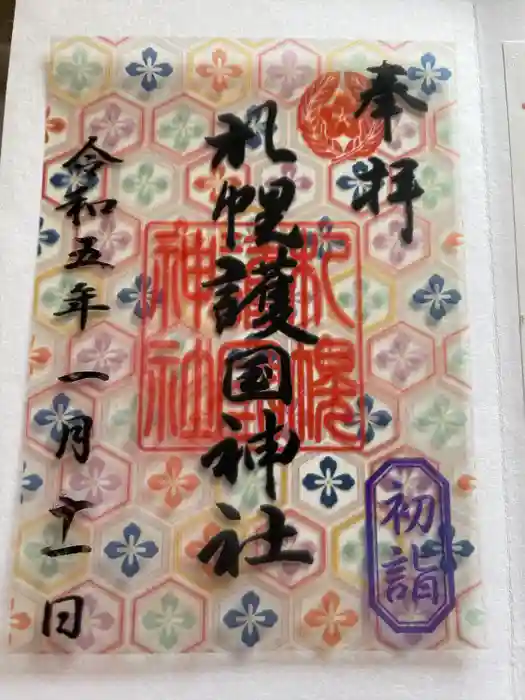 奉拝
札幌護国神社
札幌護国神社
令和五年一月十一日
初詣